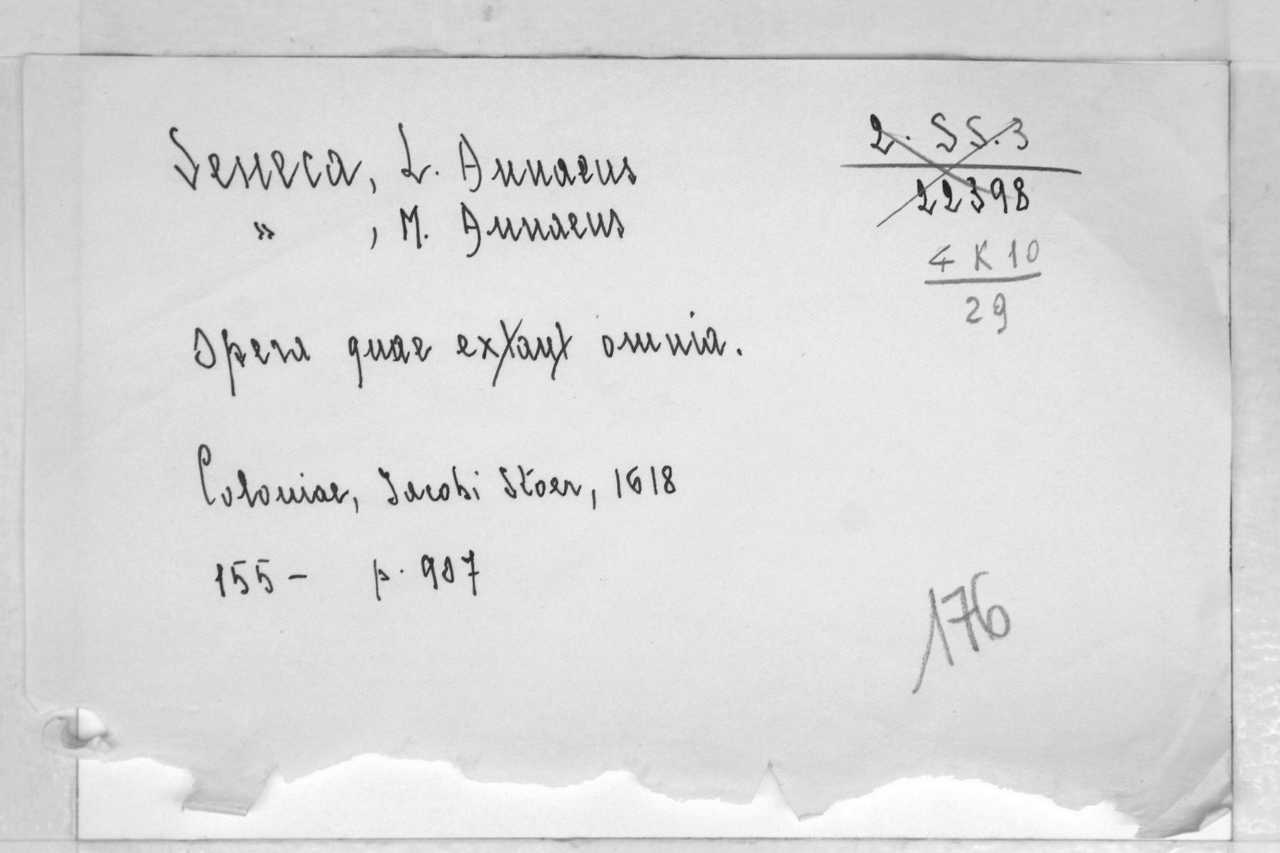 Seneca, L. Annaeus
" , M. Annaeus
Opera quae extant omnia.
Coloniae, Jacobi Stoer, 1618
155- p. 987
2. SS.3
22398
4 K 10
29
176